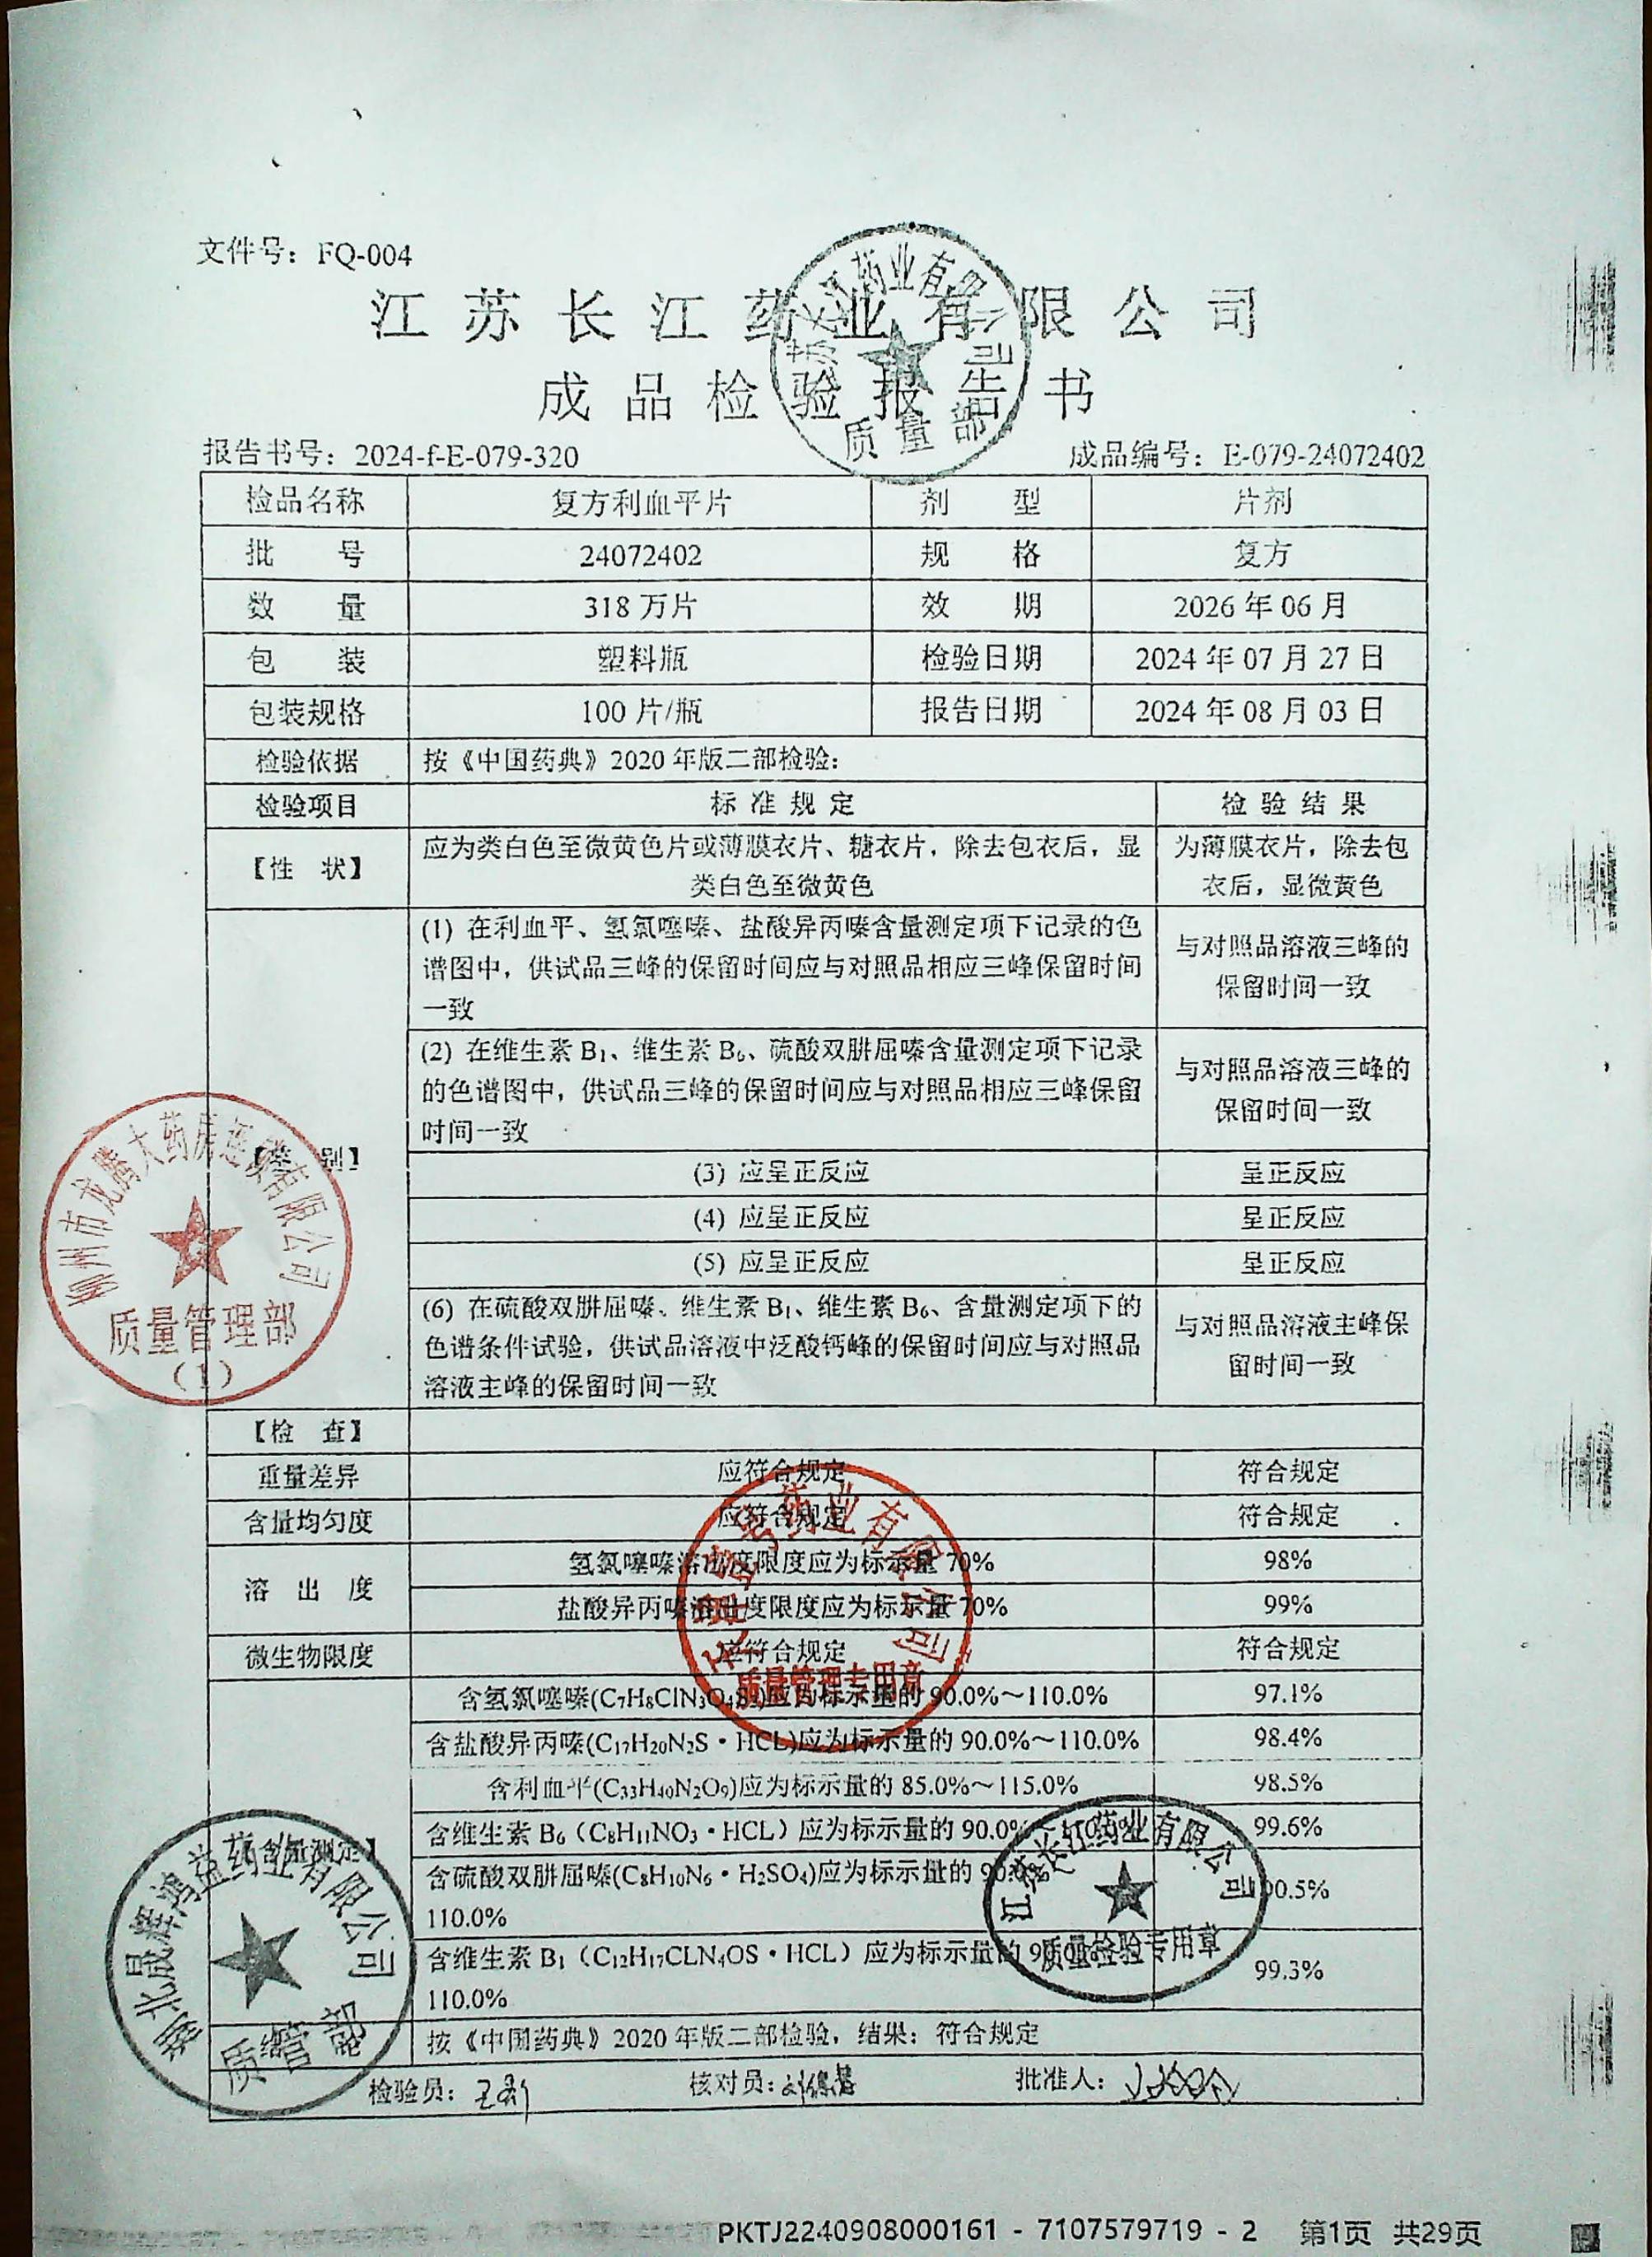 文件号：FQ-004
江苏长江药业有限公司
成品检验报告书
质量部
报告书号：2024-f-E-079-320 成品编号：E-079-24072402
检品名称 复方利血平片 剂型 片剂
批号 24072402 规格 复方
数量 318万片 效期 2026年06月
包装 塑料瓶 检验日期 2024年07月27日
包装规格 100片/瓶 报告日期 2024年08月03日
检验依据 按《中国药典》2020年版二部检验：
检验项目 标准规定 检验结果
【性状】 应为类白色至微黄色片或薄膜衣片、糖衣片，除去包衣后，显 为薄膜衣片，除去包
类白色至微黄色 衣后，显微黄色
(1) 在利血平、氢氯噻嗪、盐酸异丙嗪含量测定项下记录的色
谱图中，供试品三峰的保留时间应与对照品相应三峰保留时间 与对照品溶液三峰的
一致 保留时间一致
(2) 在维生素B₁、维生素B₆、硫酸双肼屈嗪含量测定项下记录
的色谱图中，供试品三峰的保留时间应与对照品相应三峰保留 与对照品溶液三峰的
时间一致 保留时间一致
别】
(3) 应呈正反应 呈正反应
(4) 应呈正反应 呈正反应
(5) 应呈正反应 呈正反应
(6) 在硫酸双肼屈嗪、维生素B₁、维生素B₆、含量测定项下的
色谱条件试验，供试品溶液中泛酸钙峰的保留时间应与对照品 与对照品溶液主峰保
溶液主峰的保留时间一致 留时间一致
柳州市龙腾大药房连锁有限公司
质量管理部
(1)
【检查】
重量差异 应符合规定 符合规定
含量均匀度 应符合规定 符合规定
溶出度 氢氯噻嗪溶出度限度应为标示量70% 98%
盐酸异丙嗪溶出度限度应为标示量70% 99%
微生物限度 应符合规定 符合规定
药业有限公司
质量管理专用章
含氢氯噻嗪(C₇H₈ClN₃O₄S₂)应为标示量的90.0%～110.0% 97.1%
含盐酸异丙嗪(C₁₇H₂₀N₂S·HCL)应为标示量的90.0%～110.0% 98.4%
含利血平(C₃₃H₄₀N₂O₉)应为标示量的85.0%～115.0% 98.5%
【含量测定】
含维生素B₆（C₈H₁₁NO₃·HCL）应为标示量的90.0%～110.0% 99.6%
含硫酸双肼屈嗪(C₈H₁₀N₆·H₂SO₄)应为标示量的90.0%
110.0% 90.5%
含维生素B₁（C₁₂H₁₇CLN₄OS·HCL）应为标示量的90.0%
110.0% 99.3%
江苏长江药业有限公司
质量检验专用章
湖北晟辉鸿益药业有限公司
质管部
按《中国药典》2020年版二部检验，结果：符合规定
检验员： 核对员： 批准人：
PKTJ2240908000161 - 7107579719 - 2 第1页 共29页